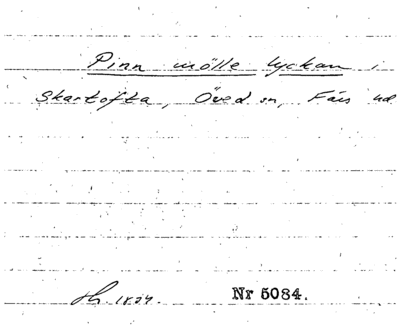 Pinn mölle lyckan i
Skartofta, Öved sn, Färs hd
Nr 5084.